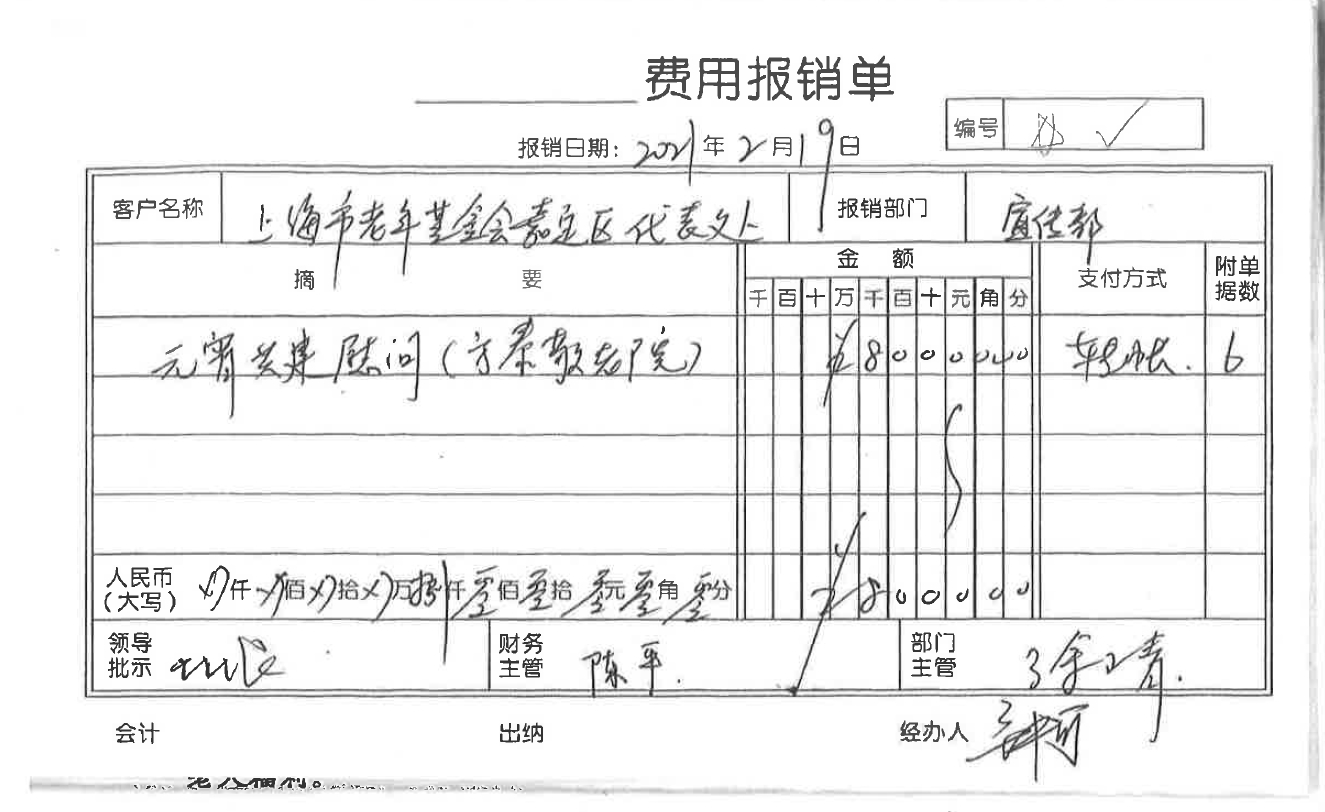 费用报销单
编号
报销日期：2021年2月19日
客户名称 上海市老年基金会嘉定区代表处 报销部门 宣传部
摘 要 金 额 支付方式 附单据数
千 百 十 万 千 百 十 元 角 分
元宵共建慰问(方泰敬老院) ¥ 8 0 0 0 0 0 转帐. 6
人民币（大写） ×仟×佰×拾×万捌仟零佰零拾零元零角零分 ¥ 8 0 0 0 0 0
领导批示 财务主管 陈平. 部门主管
会计 出纳 经办人
老人福利。